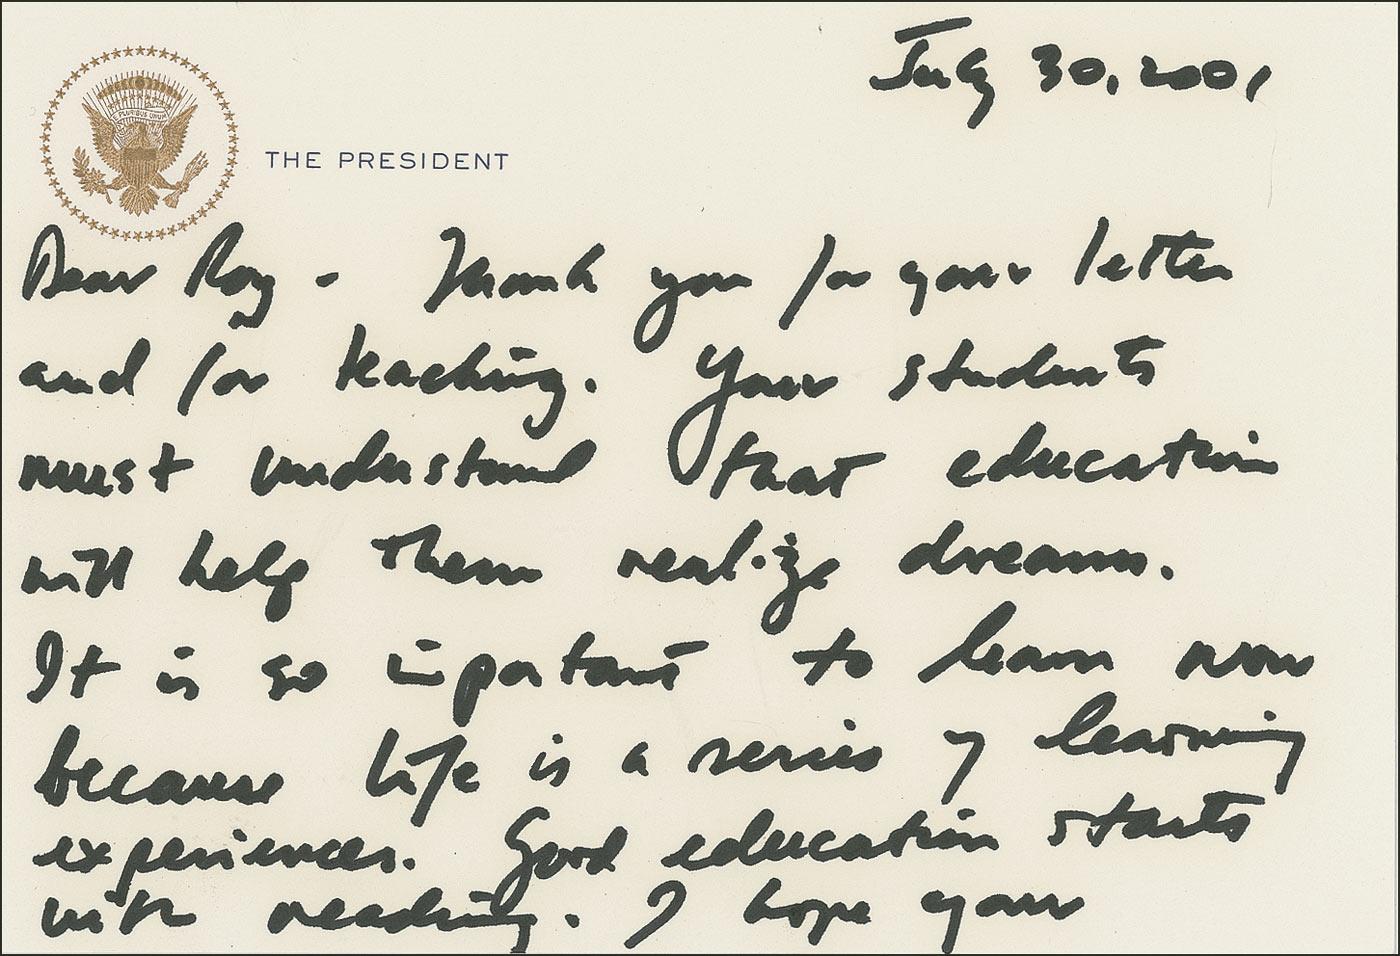 July 30, 2001
E PLURIBUS UNUM
THE PRESIDENT
Dear Roy - Thank you for your letter
and for teaching. Your students
must understand that education
will help them realize dreams.
It is so important to learn now
because life is a series of learning
experiences. Good education starts
with reading. I hope your